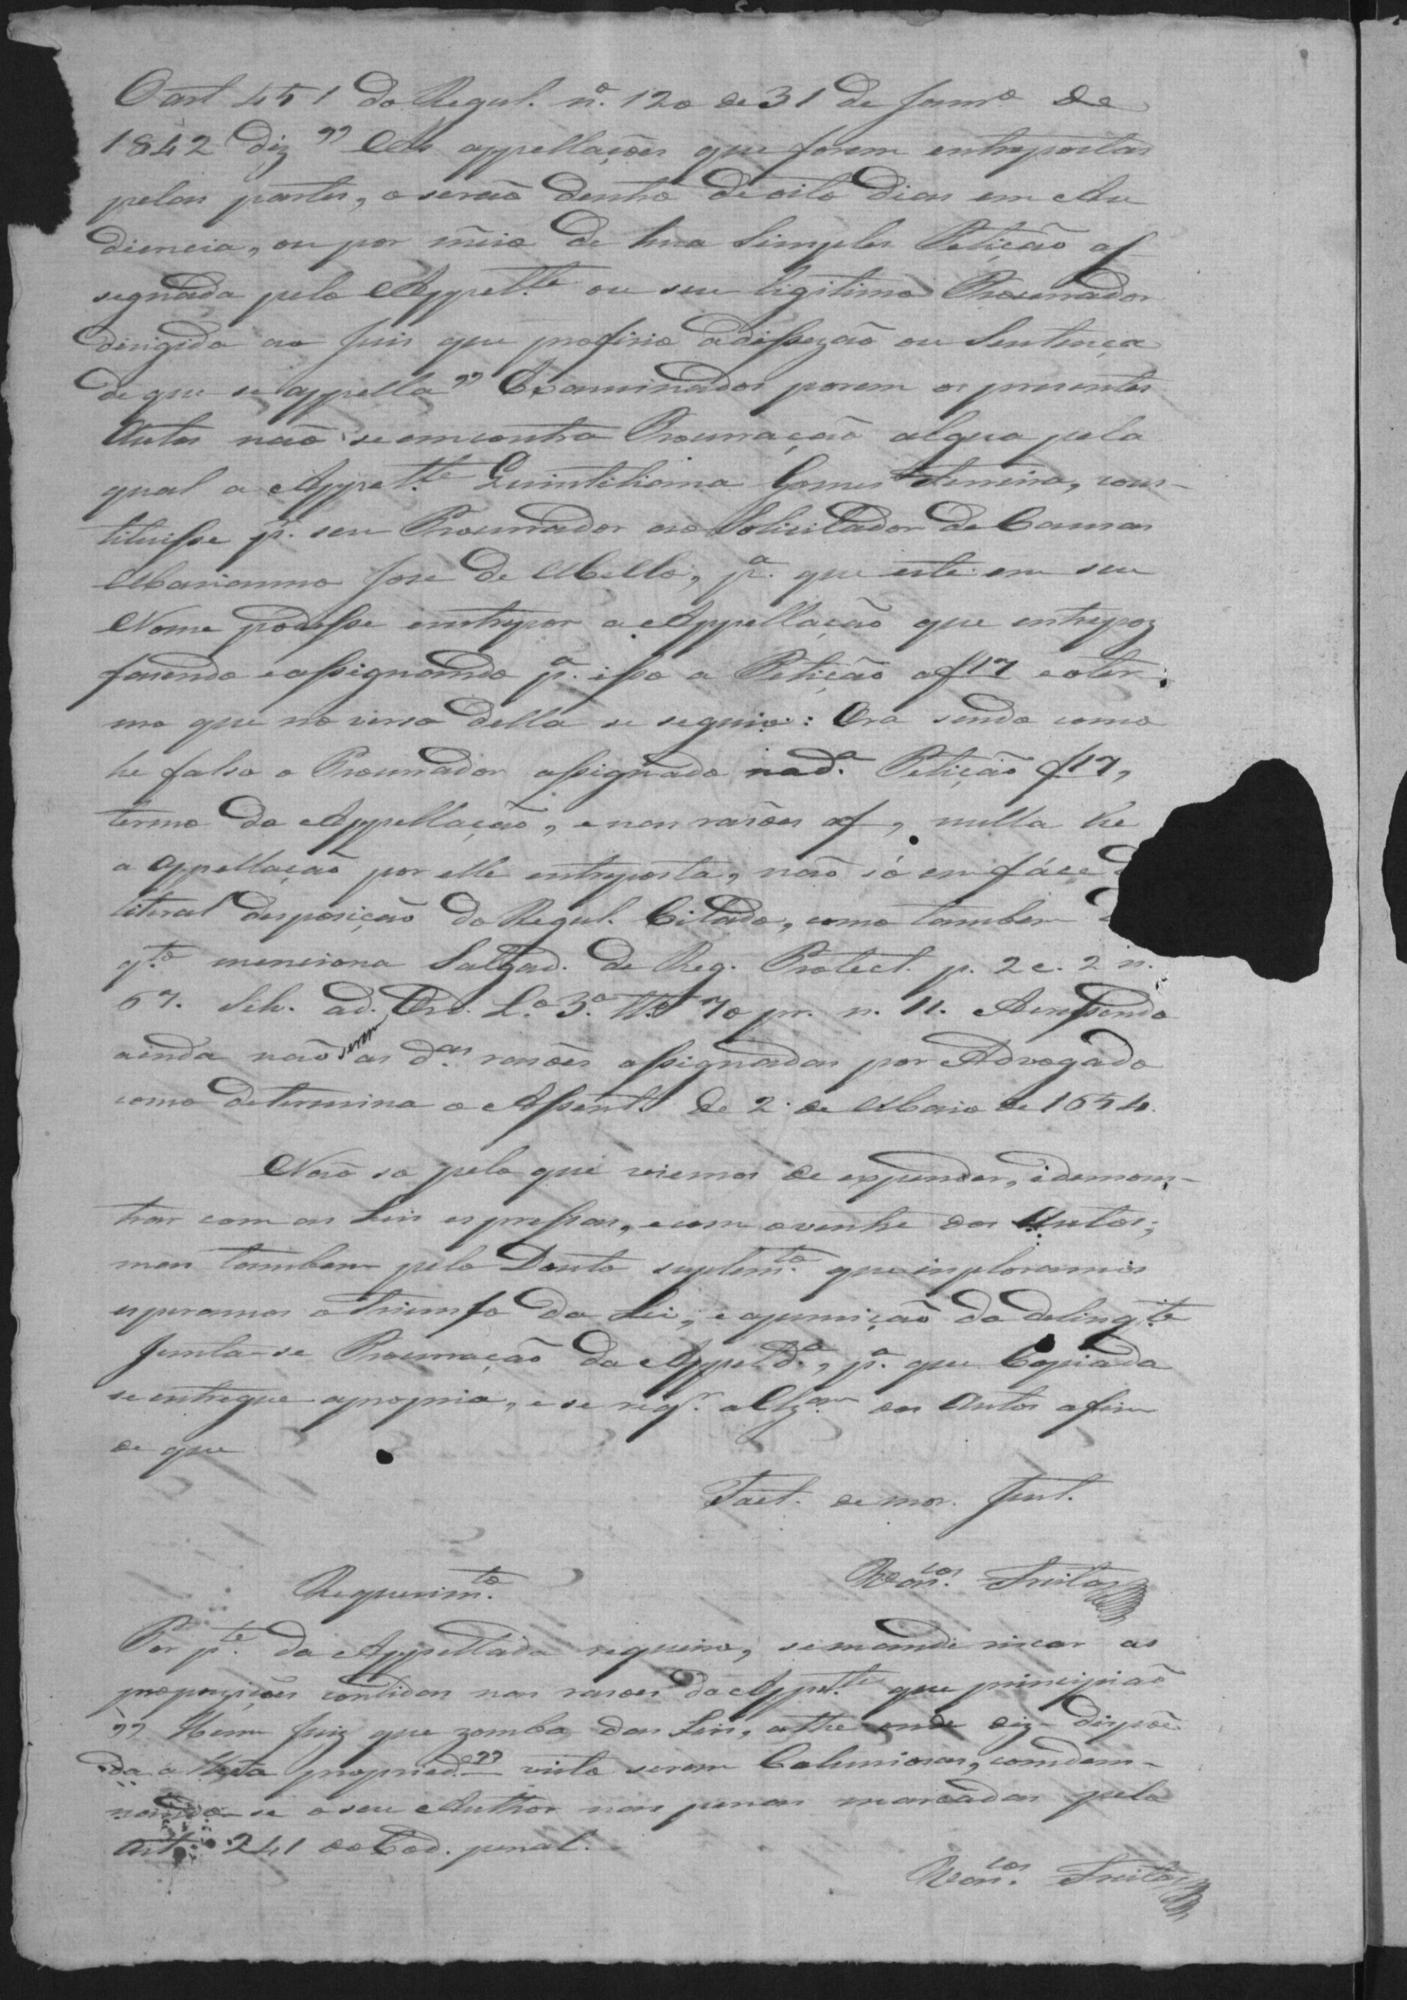 O art 451 do Regul. nº. 120 de 31 de Janrº de
1842 diz " As appellações que forem entrepostas
pelas partes, o serão dentro de oito Dias em Au
diencia, ou por meio de hua simples Petição as
segnada pelo Appelte ou seu legitimo Procurador
dirigida ao juis que profirio a dissizão ou Sentença
de que se appella " Examinados porem os presentes
Autos não se emcontra Procuração algua pela
qual a Appelte Quintiliana Gomes Ferreira, cons-
tituisse pr. seu Procurador ao Solicitador de Causas
Marianno Jose de Mello, pª. que este em seu
Nome podesse entrepor a Appellação que entrepoz
fasendo e assignando pª. isso a Petição a f 17 e o ter
mo que no verso della se seguio: Ora sendo como
he falso o Procurador assignado na dª. Petição f 17,
termo da Appellação, e nas rasões af , nulla he
a appellação por elle entreposta, não só em fáce
literal desposição do Regul. Citado, como tambem
qto menciona Salgad. de Reg. Protect. p. 2 c. 2 n.
67. Silv. ad. Ord. Lº 3º. tt.º 70 pr. n. 11. Acressendo
ainda não serem as das rasões assignadas por Advogado
como determina o Assentº de 2 de Maio de 1654.
Não so pelo que viemos de expender, e demons-
trar com as Leis expressas, e com o ventre dos Autos;
mas tambem pelo Douto suplemto. que imploramos
esperamos o Triumfo da Lei, e a punição da delinqte
Junta-se Procuração da Appeldª, pª. que Copiada
se entregue a propria, e se reqr. a Clzam dos Autos afim
de que
Faet. de mor. Just.
Vcos. Freitas
Requerimto.
Por pte. da Appellada requeiro, se mande riscar as
proposições contidas nas rasoes da Appelte que principião
" Hum Juiz que zomba das Leis, athe onde diz - dispõe
da alheia propriede " visto serem Caluniosas, condem-
nando-se o seu Author nas penas marcadas pelo
art. 241 do Cod. penal.
Vcos. Freitas